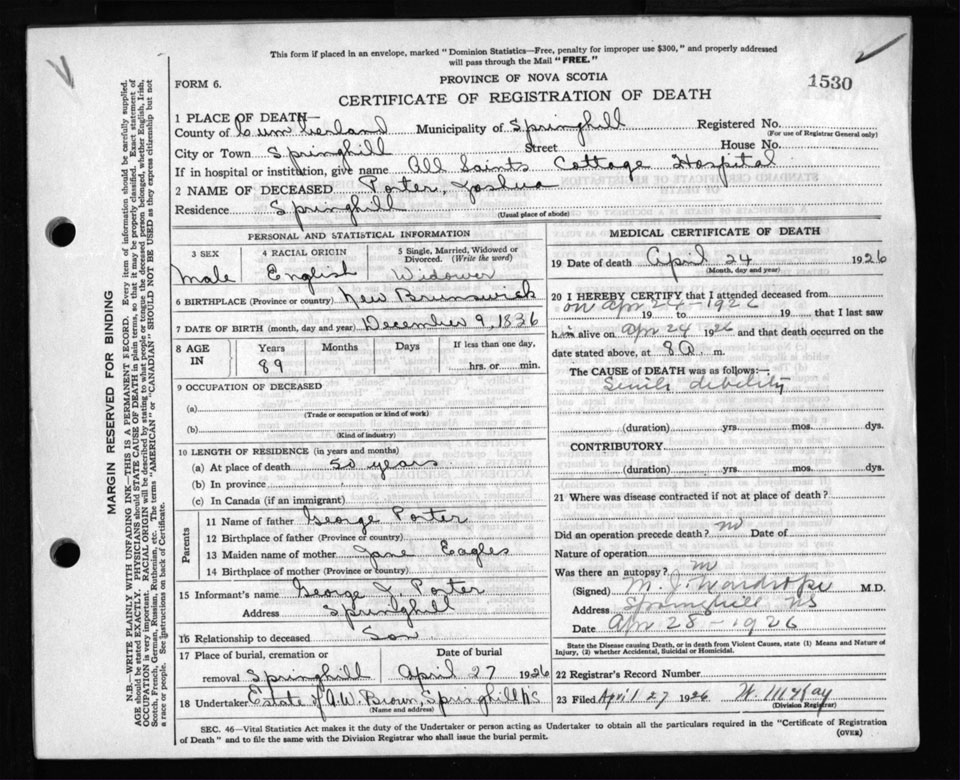 This form if placed in an envelope, marked "Dominion Statistics—Free, penalty for improper use $300," and properly addressed
will pass through the Mail "FREE."
FORM 6.
PROVINCE OF NOVA SCOTIA
1530
CERTIFICATE OF REGISTRATION OF DEATH
1 PLACE OF DEATH—
County of Cumberland Municipality of Springhill Registered No.
(For use of Registrar General only)
City or Town Springhill Street House No.
If in hospital or institution, give name All Saints Cottage Hospital
2 NAME OF DECEASED Porter, Joshua
Residence Springhill
(Usual place of abode)
PERSONAL AND STATISTICAL INFORMATION
3 SEX 4 RACIAL ORIGIN 5 Single, Married, Widowed or
Divorced. (Write the word)
Male English Widower
6 BIRTHPLACE (Province or country) New Brunswick
7 DATE OF BIRTH (month, day and year) December 9, 1836
8 AGE IN Years Months Days If less than one day,
89 hrs. or min.
9 OCCUPATION OF DECEASED
(a)
(Trade or occupation or kind of work)
(b)
(Kind of industry)
10 LENGTH OF RESIDENCE (in years and months)
(a) At place of death 50 years
(b) In province
(c) In Canada (if an immigrant)
Parents
11 Name of father George Porter
12 Birthplace of father (Province or country)
13 Maiden name of mother Jane Eagles
14 Birthplace of mother (Province or country)
15 Informant's name George J. Porter
Address Springhill
16 Relationship to deceased Son
17 Place of burial, cremation or Date of burial
removal Springhill April 27 1926
18 Undertaker Estate of A.W. Brown, Springhill N.S
(Name and address)
MEDICAL CERTIFICATE OF DEATH
19 Date of death April 24 1926
(Month, day and year)
20 I HEREBY CERTIFY that I attended deceased from
on Apr 24 - 1926
19 to 19 that I last saw
him alive on Apr 24 1926 and that death occurred on the
date stated above, at 8 a. m.
The CAUSE of DEATH was as follows:—
Senile debility
(duration) yrs. mos. dys.
CONTRIBUTORY
(duration) yrs. mos. dys.
21 Where was disease contracted if not at place of death?
Did an operation precede death? no Date of
Nature of operation
Was there an autopsy? no
(Signed) M. J. Wardrope M.D.
Address Springhill NS
Date Apr 28 - 1926
State the Disease causing Death, or in death from Violent Causes, state (1) Means and Nature of
Injury, (2) whether Accidental, Suicidal or Homicidal.
22 Registrar's Record Number
23 Filed April 27 1926 W. McKay
(Division Registrar)
SEC. 46—Vital Statistics Act makes it the duty of the Undertaker or person acting as Undertaker to obtain all the particulars required in the "Certificate of Registration
of Death" and to file the same with the Division Registrar who shall issue the burial permit.
(OVER)
MARGIN RESERVED FOR BINDING
N.B.—WRITE PLAINLY WITH UNFADING INK—THIS IS A PERMANENT RECORD. Every item of information should be carefully supplied.
AGE should be stated EXACTLY. PHYSICIANS should STATE CAUSE OF DEATH in plain terms, so that it may be properly classified. Exact statement of
OCCUPATION is very important. RACIAL ORIGIN will be described by stating to what people or tongue the deceased person belonged, whether English, Irish,
Scotch, French, German, Russian, Ruthenian, etc. The terms "AMERICAN" or "CANADIAN" SHOULD NOT BE USED as they express citizenship but not
a race or people. See instructions on back of Certificate.